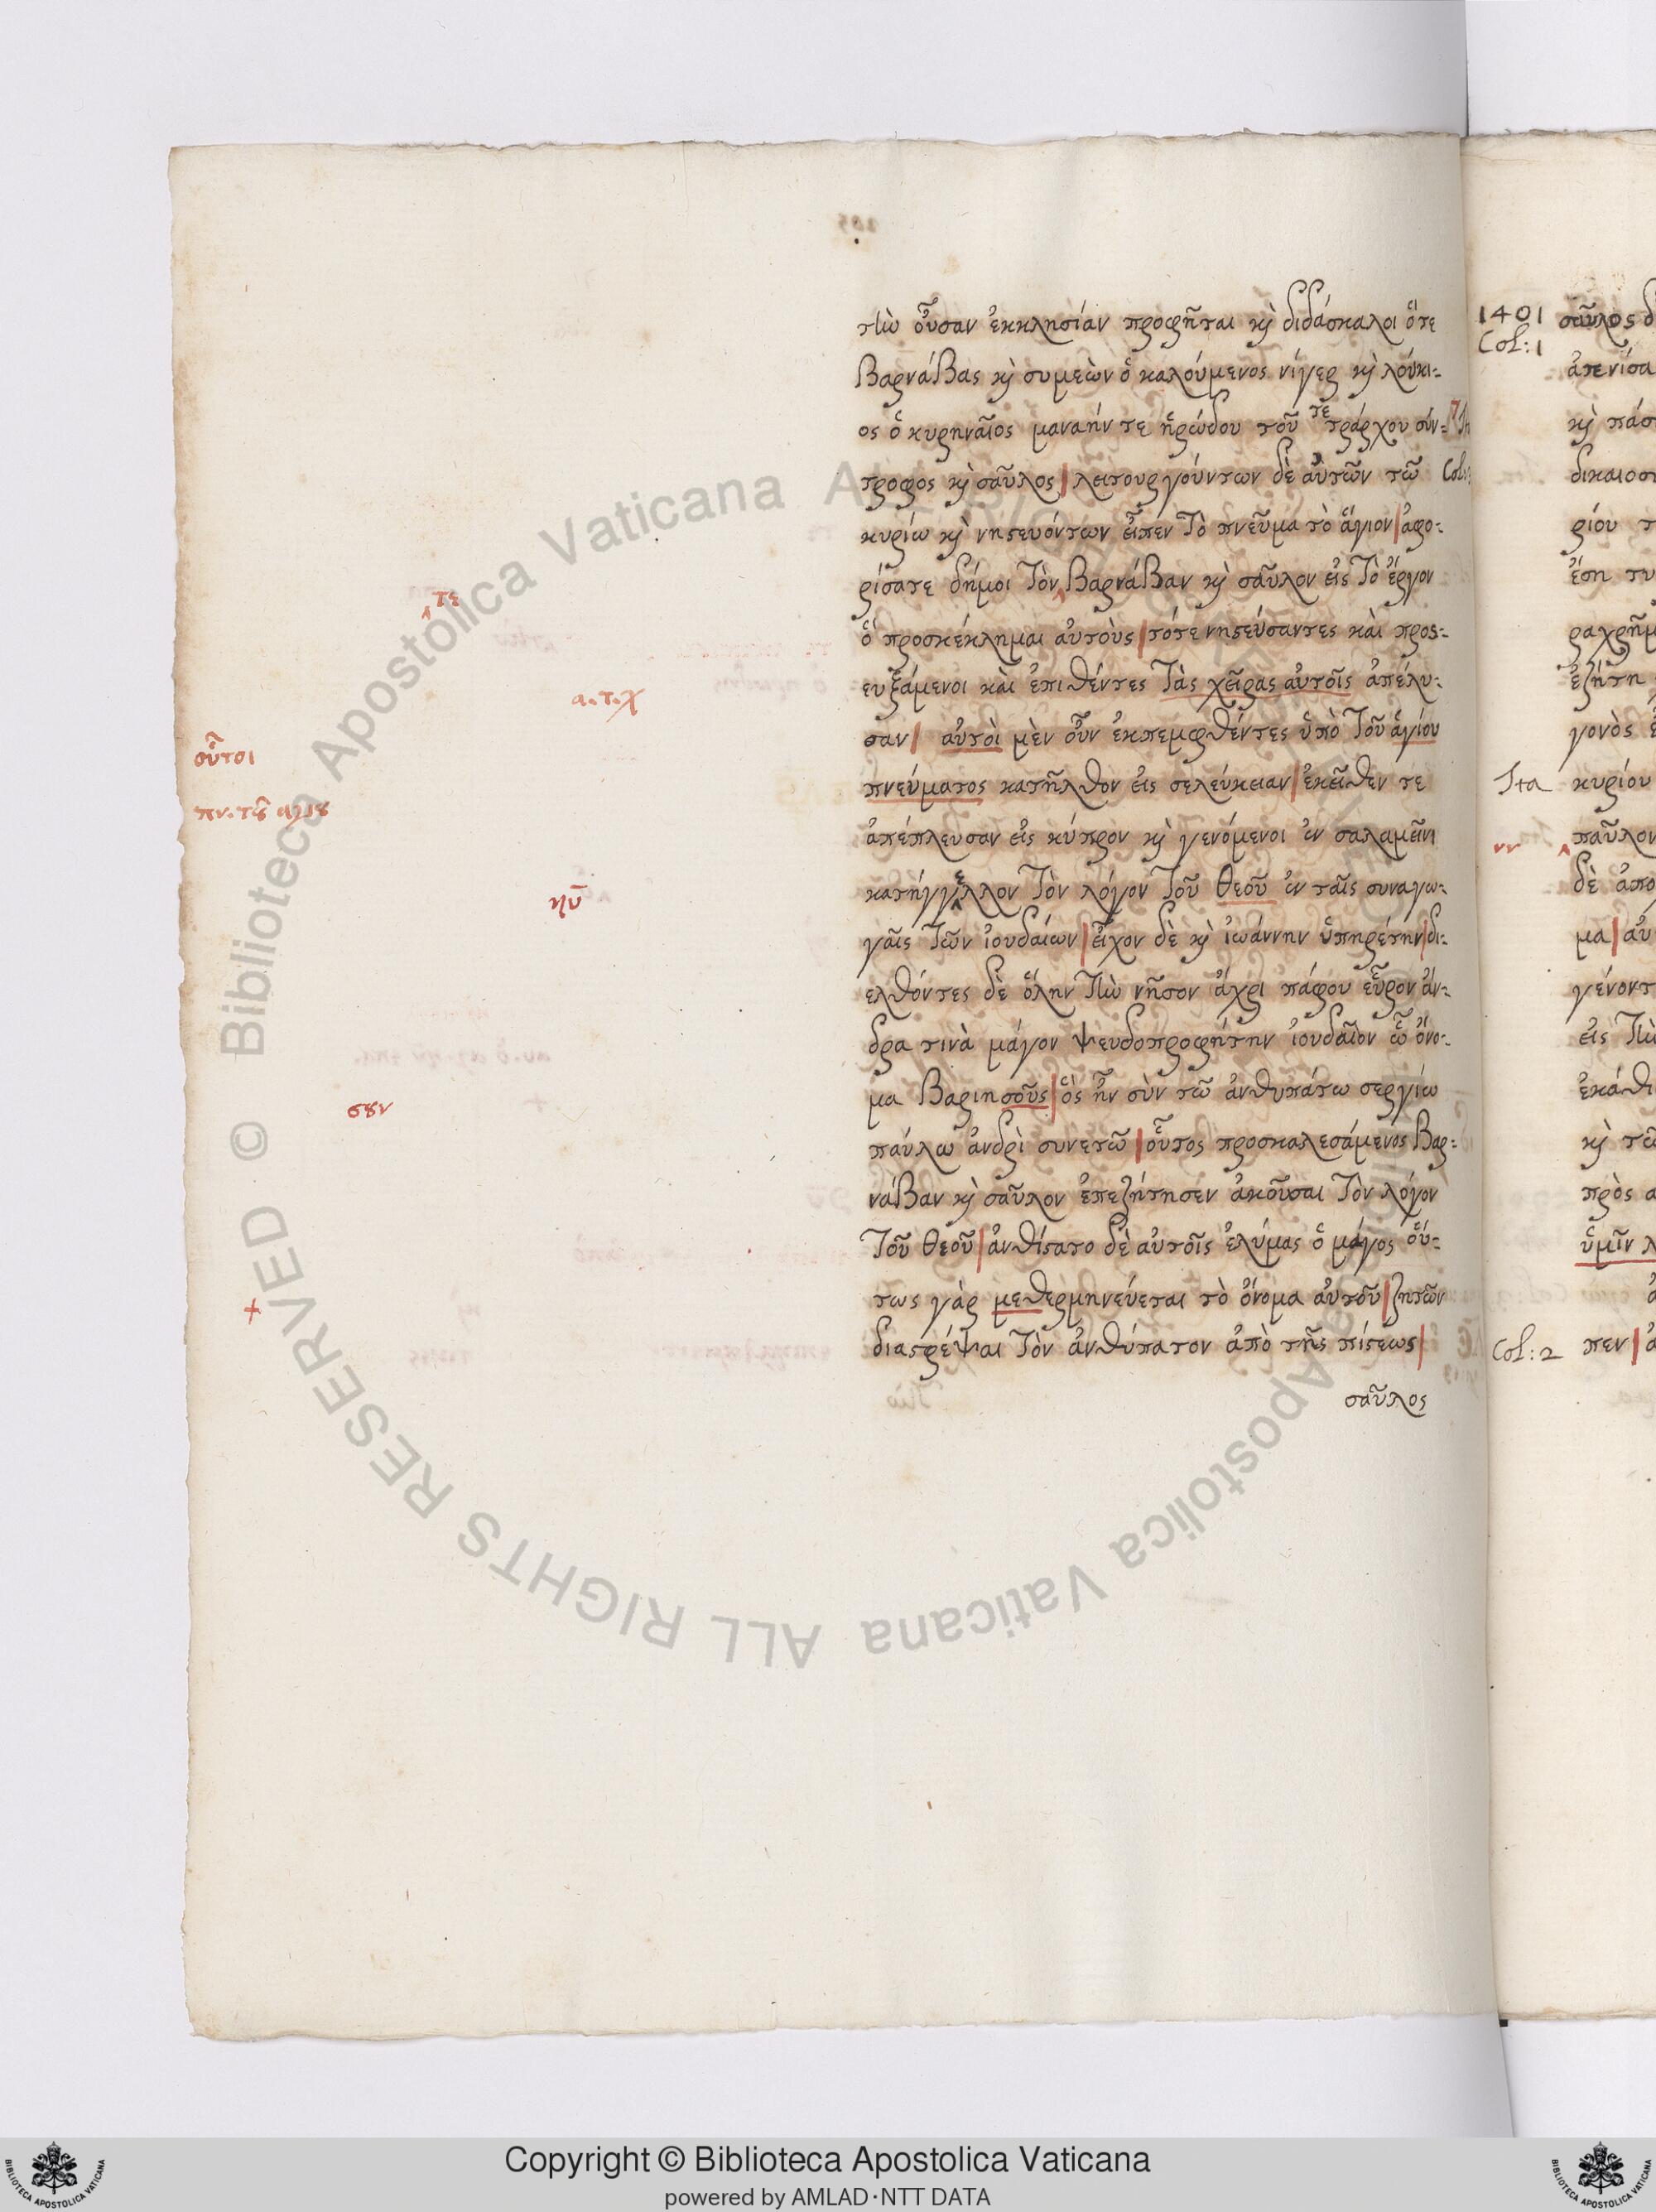 τὴν οὖσαν ἐκκλησίαν προφῆται κὶ διδάσκαλοι ὅτε
Βαρνάβας κὶ συμεὼν ὁ καλούμενος νίγερ κὶ λούκι-
ος ὁ κυρηναῖος μαναήν τε ἡρώδου τοῦ τετράρχου σύν-
τροφος κὶ σαῦλος | λειτουργούντων δὲ αὐτῶν τῶ Col:
κυρίω κὶ νηστευόντων εἶπεν τὸ πνεῦμα τὸ ἅγιον | ἀφο-
ρίσατε δήμοι τὸν Βαρνάβαν κὶ σαῦλον εἰς τὸ ἔργον
τε
ὃ προσκέκλημαι αὐτοὺς | τότε νηστεύσαντες καὶ προς-
ευξάμενοι καὶ ἐπιθέντες τὰς χεῖρας αὐτοῖς ἀπέλυ-
α.τ.χ
σαν | αὐτοὶ μὲν οὖν ἐκπεμφθέντες ὑπὸ τοῦ ἁγίου
οὗτοι
πνεύματος κατῆλθον εἰς σελεύκειαν | ἐκεῖθεν τε
πν. τȣ͂ αγιȣ
ἀπέπλευσαν εἰς κύπρον κὶ γενόμενοι ἐν σαλαμεῖνι
κατήγγελλον τὸν λόγον τοῦ θεοῦ ἐν ταῖς συναγω-
κυ
γαῖς τῶν ἰουδαίων | εἶχον δὲ κὶ ἰωάννην ὑπηρέτην | δι-
ελθόντες δὲ ὅλην τὴν νῆσον ἄχρι πάφου εὗρον ἄν-
δρα τινὰ μάγον ψευδοπροφήτην ἰουδαῖον ὧ ὄνο-
μα Βαριησοῦς | ὃς ἦν σὺν τῶ ἀνθυπάτω σεργίω
σȣν
παύλω ἀνδρὶ συνετῶ | οὗτος προσκαλεσάμενος Βαρ-
νάβαν κὶ σαῦλον ἐπεζήτησεν ἀκοῦσαι τὸν λόγον
τοῦ θεοῦ | ἀνθίστατο δὲ αὐτοῖς ἐλύμας ὁ μάγος οὕ-
τως γὰρ μεθερμηνεύεται τὸ ὄνομα αὐτοῦ | ζητῶν
+
διαστρέψαι τὸν ἀνθύπατον ἀπὸ τῆς πίστεως |
σαῦλος
1401 σαῦλος
Col: 1
ἀτενίσα
κὶ πάσ
δικαιοσ
ρίου τ
ἔση τυ
ραχρῆμ
ἐζήτη
γονὸς
Ita κυρίου
νν παῦλον
δὲ ἀπο
μα | αὐ
γένοντ
εἰς τὴν
ἐκάθι
κὶ τῶ
πρὸς α
ὑμῖν λ
Col: 2 πεν | ἀ
© Biblioteca Apostolica Vaticana ALL RIGHTS RESERVED
Copyright © Biblioteca Apostolica Vaticana
powered by AMLAD·NTT DATA
BIBLIOTECA APOSTOLICA VATICANA
BIBLIOTECA APOSTOLICA VATICANA